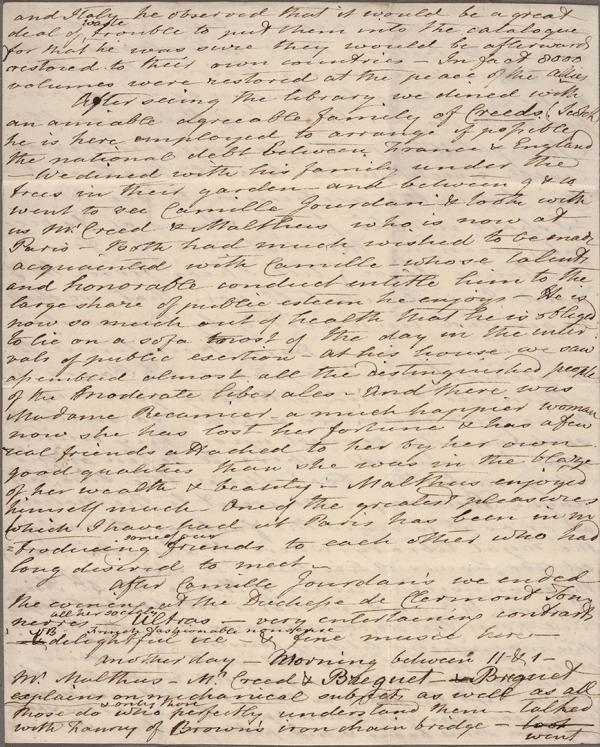 and Italy he observed that it would be a great
deal of waste trouble to put them into the catalogue
for that he was sure they would be afterwards
restored to their own countries – In fact 8000
volumes were restored at the peace of the allies
After seeing the library we dined with
an amiable agreeable family of Creeds (Scotch)
he is here employed to arrange if possible
the national debt between France & England
– We dined with his family under the
trees in their garden – and between 9 & 10
went to see Camille Jourdan & took with
us Mr Creed & Malthus who is now at
Paris – Both had much wished to be made
acquainted with Camille whose talents
and honorable conduct entitle him to the
large share of public esteem he enjoys – He is
now so much out of health that he is obliged
to lie on a sofa most of the day in the inter
vals of public exertion – at his house we saw
assembled almost all the distinguished people
of the moderate liberales – And there was
Madame Recamier a much happier woman
now she has lost her fortune & has a few
real friends attached to her by her own
good qualities than she was in the blaze
of her wealth & beauty – Malthus enjoyed
himself much – One of the greatest pleasures
which I have had at Paris has been in in
=troducing some of our friends to each other who had
long desired to meet –
After Camille Jourdan's we ended
the evening at the Duchesse de Clermont Ton
nerres – all her society Ultras – very entertaining contrast
NB French fashionable nonsense
delightful ice – & fine music here –
Another day – Morning between 11 & 1 –
Mr Malthus – Mr Creed & Breguet – Breguet
explains on mechanical subjects as well as all
those do & only those who perfectly understand them – talked
with Fanny of Brown's iron chain bridge – took
went